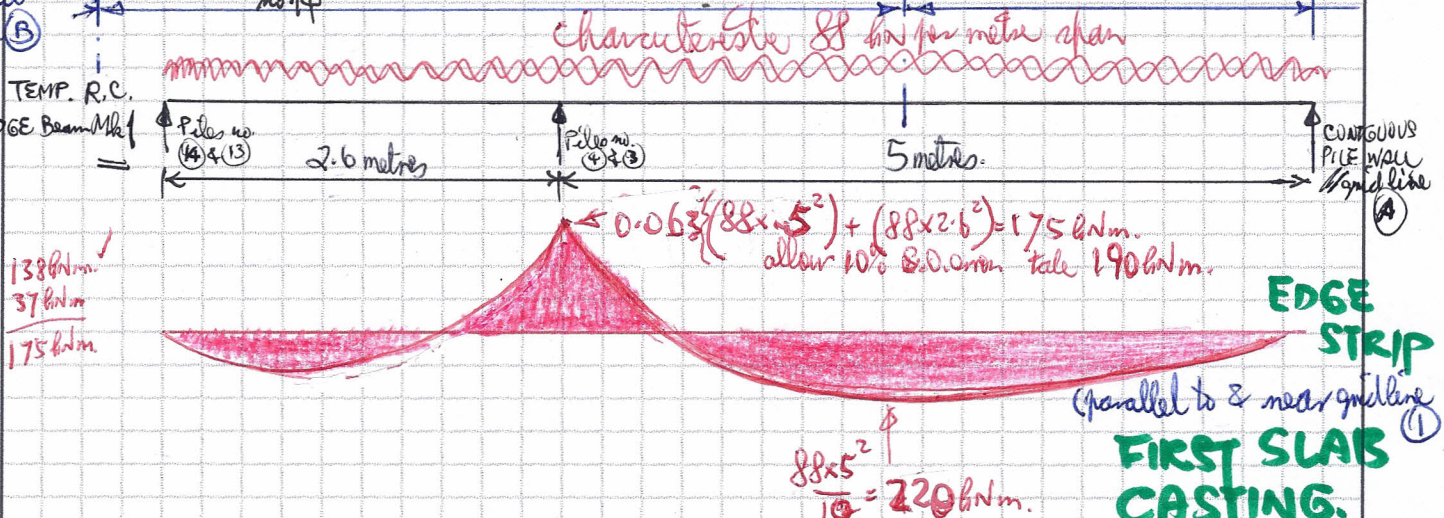 B
characteriste 88 kN per metre span
TEMP. R.C.
GE Beam Mk1
Piles no.
14 & 13
2.6 metres
Piles no.
4 & 3
5 metres.
CONTIGUOUS
PILE WALL
gridline
A
0.063{(88x.5²) + (88x2.6²)=175 kNm.
allow 10% take 190 kNm.
138 kNm. ✓
37 kNm
175 kNm.
EDGE
STRIP
(parallel to & near gridline
1
FIRST SLAB
CASTING.
88x5²
10 = 220 kNm.